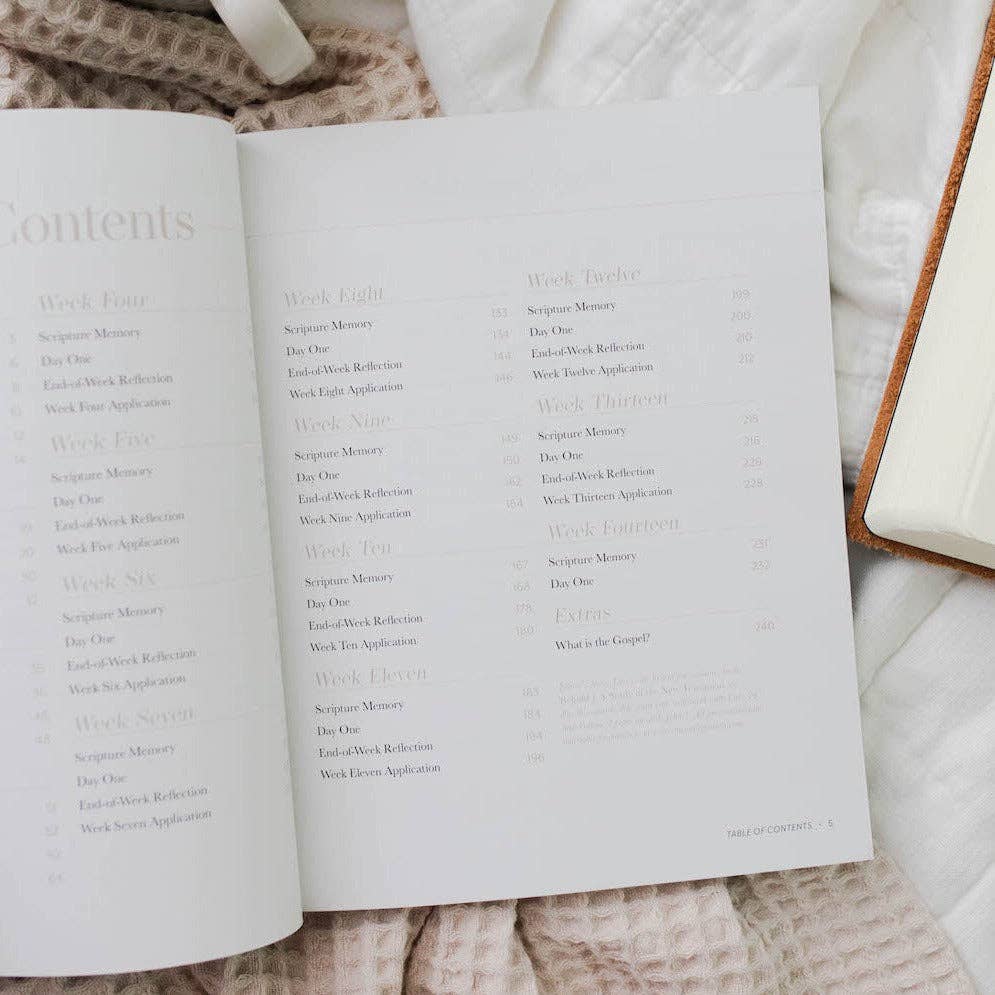 Contents
Week Four
Scripture Memory
Day One
End-of-Week Reflection
Week Four Application
Week Five
Scripture Memory
Day One
End-of-Week Reflection
Week Five Application
Week Six
Scripture Memory
Day One
End-of-Week Reflection
Week Six Application
Week Seven
Scripture Memory
Day One
End-of-Week Reflection
Week Seven Application
Week Eight
Scripture Memory 133
Day One 134
End-of-Week Reflection 144
Week Eight Application 146
Week Nine
Scripture Memory 149
Day One 150
End-of-Week Reflection 162
Week Nine Application 164
Week Ten
Scripture Memory 167
Day One 168
End-of-Week Reflection 178
Week Ten Application 180
Week Eleven
Scripture Memory 183
Day One 184
End-of-Week Reflection 194
Week Eleven Application 196
Week Twelve
Scripture Memory 199
Day One 200
End-of-Week Reflection 210
Week Twelve Application 212
Week Thirteen
Scripture Memory 215
Day One 216
End-of-Week Reflection 226
Week Thirteen Application 228
Week Fourteen
Scripture Memory 231
Day One 232
Extras
What is the Gospel? 240
TABLE OF CONTENTS · 5